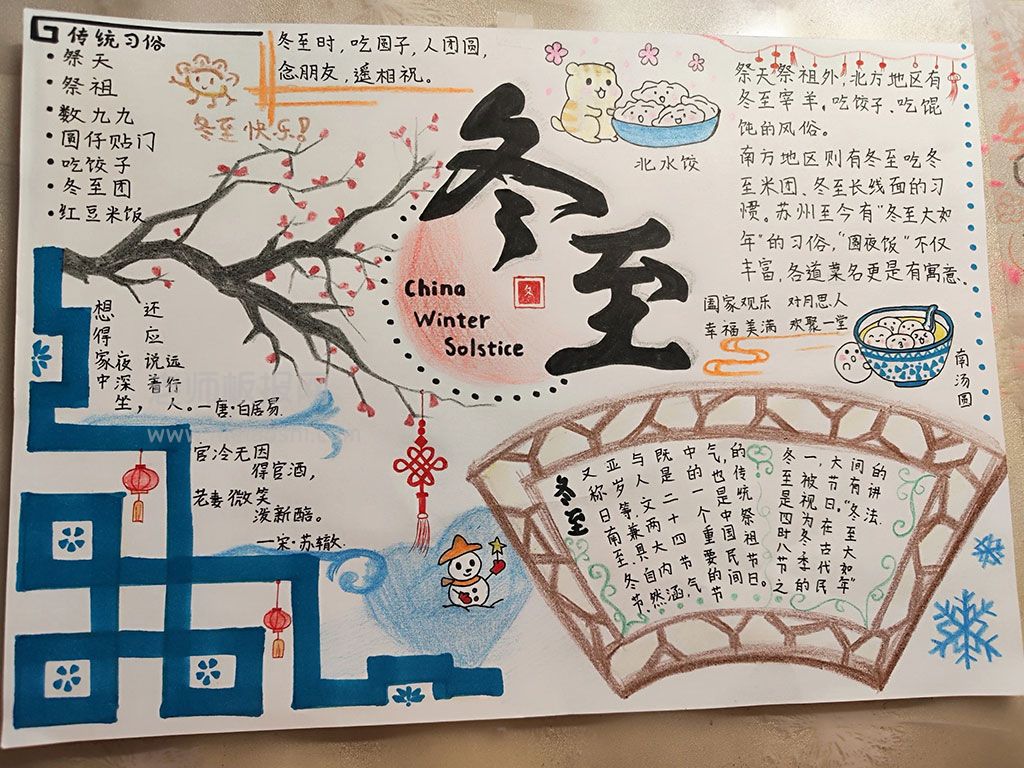 传统习俗
·祭天
·祭祖
·数九九
·圆仔贴门
·吃饺子
·冬至团
·红豆米饭
冬至快乐!
冬至时,吃团子,人团圆,
念朋友,遥相祝。
冬至
China
Winter
Solstice
冬
北水饺
祭天祭祖外,北方地区有
冬至宰羊,吃饺子、吃馄
饨的风俗。
南方地区则有冬至吃冬
至米团、冬至长线面的习
惯。苏州至今有“冬至大如
年”的习俗,“圆夜饭”不仅
丰富,各道菜名更是有寓意.
国家观乐 对月思人
幸福美满 欢聚一堂
南汤圆
想得家中
夜深坐,
还应说着
远行人。
一唐·白居易.
官冷无因
得官酒,
老妻微笑
泼新醅。
一宋·苏辙.
冬至
的讲法.
间有“冬至大如年”
大节日。在古代民
一,被视为冬季的
冬至是四时八节之
的传统祭祖节日。
气,也是中国民间
中的一个重要的节
既是二十四节气
与人文两大内涵,
亚岁等,兼具自然
又称日南至、冬节、